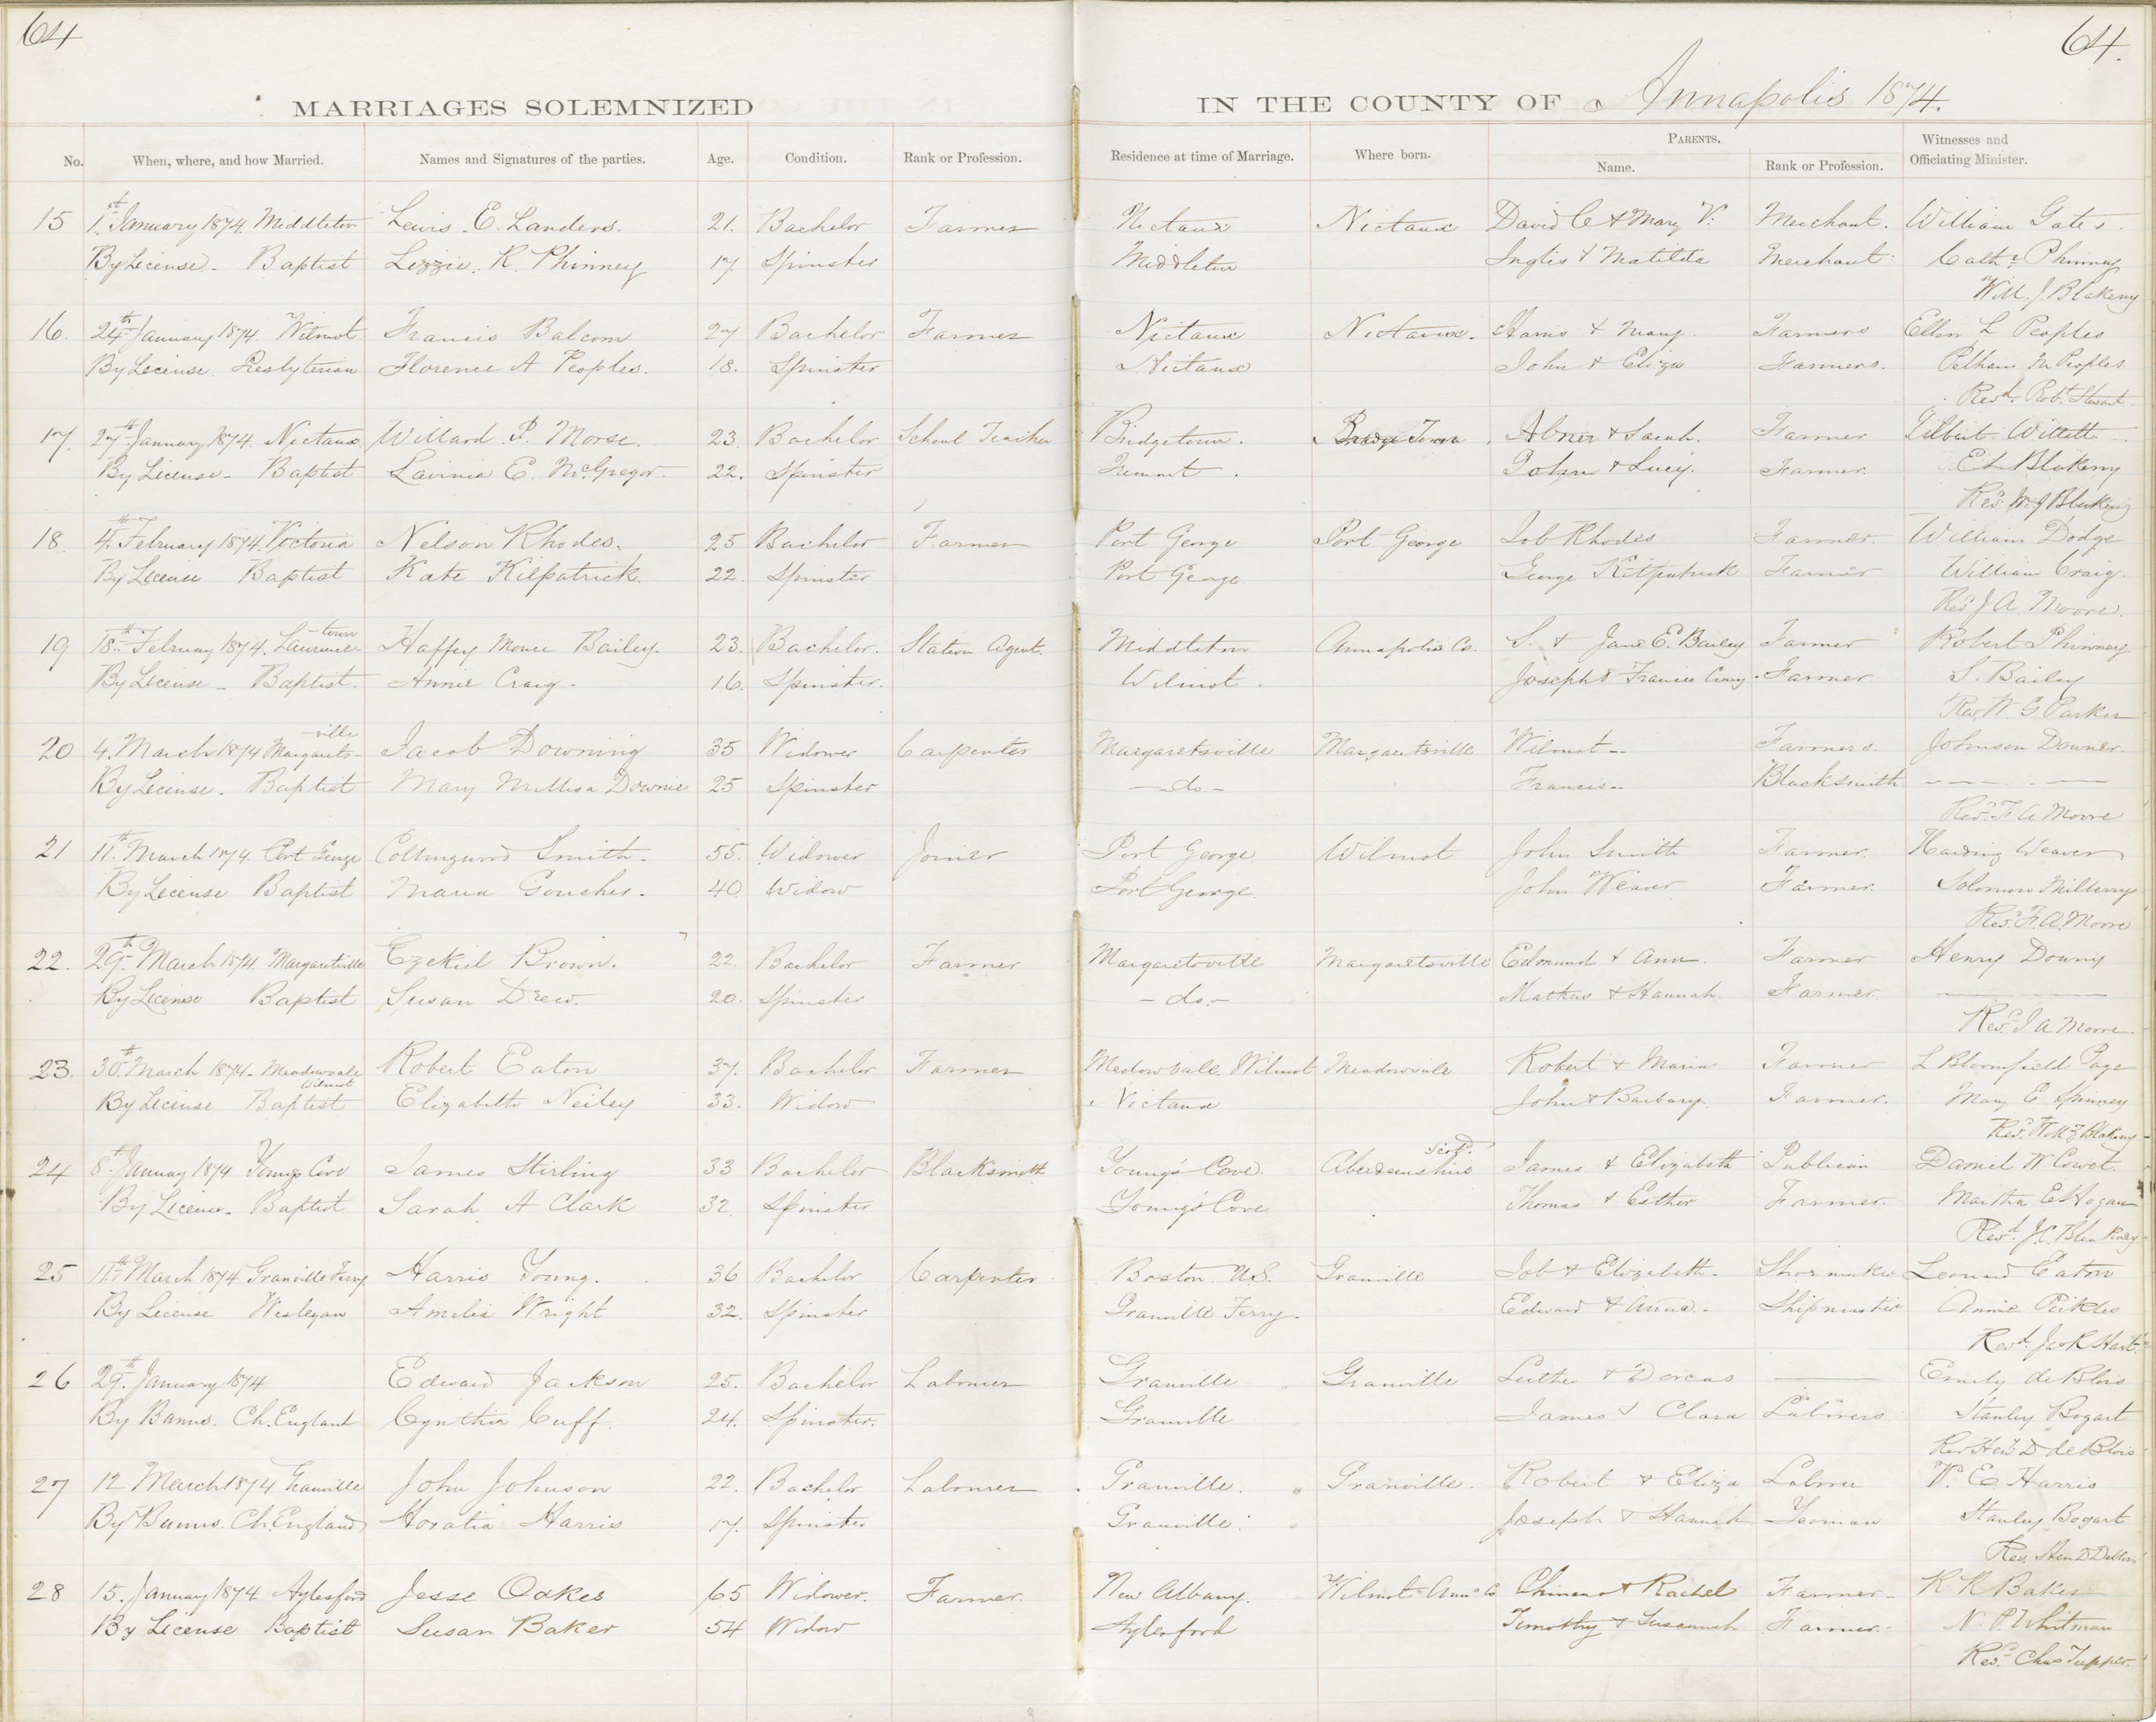 64
64.
MARRIAGES SOLEMNIZED IN THE COUNTY OF Annapolis 1874.
No. When, where, and how Married. Names and Signatures of the parties. Age. Condition. Rank or Profession. Residence at time of Marriage. Where born. PARENTS. Name. Rank or Profession. Witnesses and Officiating Minister.
15 1st January 1874. Middleton Lewis E. Landers. 21. Bachelor Farmer Nictaux Nictaux David C & Mary V. Merchant. William Gates.
By License - Baptist Lizzie. R. Phinney 17 Spinster Middleton Inglis & Matilda Merchant. Cath. Phinney
Will. J. Blakeny
16. 24th January 1874. Wilmot Francis Balcom 27 Bachelor Farmer Nictaux Nictaux. & Mary. Farmers Ellen L Peoples
By License Presbyterian Florence A Peoples. 18. Spinster Nictaux John & Eliza Farmers. Pelham M Peoples
Revd. Robt. Stewart
17. 27th January 1874. Nictaux Willard P. Morse. 23. Bachelor School Teacher Bridgetown. Town Abner & Sarah. Farmer Gilbert Willett
By License - Baptist Lavinia E. McGregor. 22. Spinster & Lucy. Farmer. Blakeny
Revd. W. J. Blakeny
18. 4th February 1874. Victoria Nelson Rhodes. 25 Bachelor Farmer Port George Port George Job Rhodes Farmer William Dodge
By License Baptist Kate Kilpatrick. 22. Spinster Port George George Kilpatrick Farmer William Craig.
Revd J A. Moore.
19 18th February 1874. Laurence-town Haffey Bailey. 23. Bachelor. Station Agent. Middleton Annapolis Co. S. & Jane E. Bailey Farmer Robert Phinney
By License - Baptist. Annie Craig - 16. Spinster. Wilmot. Joseph & Francis Craig. Farmer. S. Bailey
Rev. W. G Parker
20 4. March 1874 Margarets-ville Jacob Downing 35 Widower Carpenter Margaretsville Margaretsville Wilmot -- Farmers. Johnson Downer.
By License. Baptist Mary Millisa Downie 25 Spinster - do. - Francis -- Blacksmith
Revd. F A Moore
21 11th March 1874. Port George Collingwood Smith. 55. Widower Joiner Port George Wilmot John Smith Farmer. Harding Weaver
By License Baptist Maria Goucher. 40. Widow Port George. John Weaver Farmer. Solomon Milberry
Revd. F. A Moore
22. 29th March 1874. Margaretville Ezekiel Brown. 22. Bachelor Farmer Margaretsville Margaretsville Edmund & Ann. Farmer Henry Downy
By License Baptist Susan Drew. 20. Spinster - do. - Mathew & Hannah. Farmer.
Revd J A Moore.
23. 30th March 1874. Meadowvale Wilmot Robert Eaton 37. Bachelor Farmer Medowvale. Wilmot Meadowvale Robert & Maria Farmer L Bloomfield Page
By License Baptist Elizabeth Neiley 33. Widow Nictaux John & Barbary. Farmer. Mary E Spinney
Revd. Blakeny
24 8th January 1874 Youngs Cove James Stirling 33 Bachelor Blacksmith Young's Cove. Aberdeenshire Scotd. James & Elizabeth Publican Daniel W
By License. Baptist Sarah A Clark 32. Spinster Young's Cove Thomas & Esther Farmer. Martha E Hogan
Revd. J. C. Bleakney
25 11th March 1874 Granville Ferry Harris Young. 36 Bachelor Carpenter Boston U.S. Granville Job & Elizabeth. Shoemaker Leonard Eaton
By License Wesleyan Amelia Wright 32. Spinster Granville Ferry. Edward & Anna - Shipmaster Annie
Revd. Jas R Hart.
26 29th January 1874 Edward Jackson 25. Bachelor Labourer Granville Granville Luther & Dorcas Emily de Blois
By Banns. Ch. England Cynthia Cuff. 24. Spinster. Granville James & Clara Labourers Stanley Bogart
Rev. Heny. D de Blois
27 12 March 1874 Granville John Johnson 22. Bachelor Labourer Granville. Granville. Robert & Eliza W. E Harris
By Banns. Ch. England Horatia Harris 17. Spinster Granville. Joseph & Hannah Yeoman Stanley Bogart
Rev. Hen D
28 15. January 1874 Aylesford Jesse Oakes 65 Widower. Farmer. New Albany. Wilmot Anns Co & Rachel Farmer - R R Baker
By License Baptist Susan Baker 54 Widow Aylesford Timothy & Susannah Farmer. N. P. Whitman
Revd. Chas Tupper.